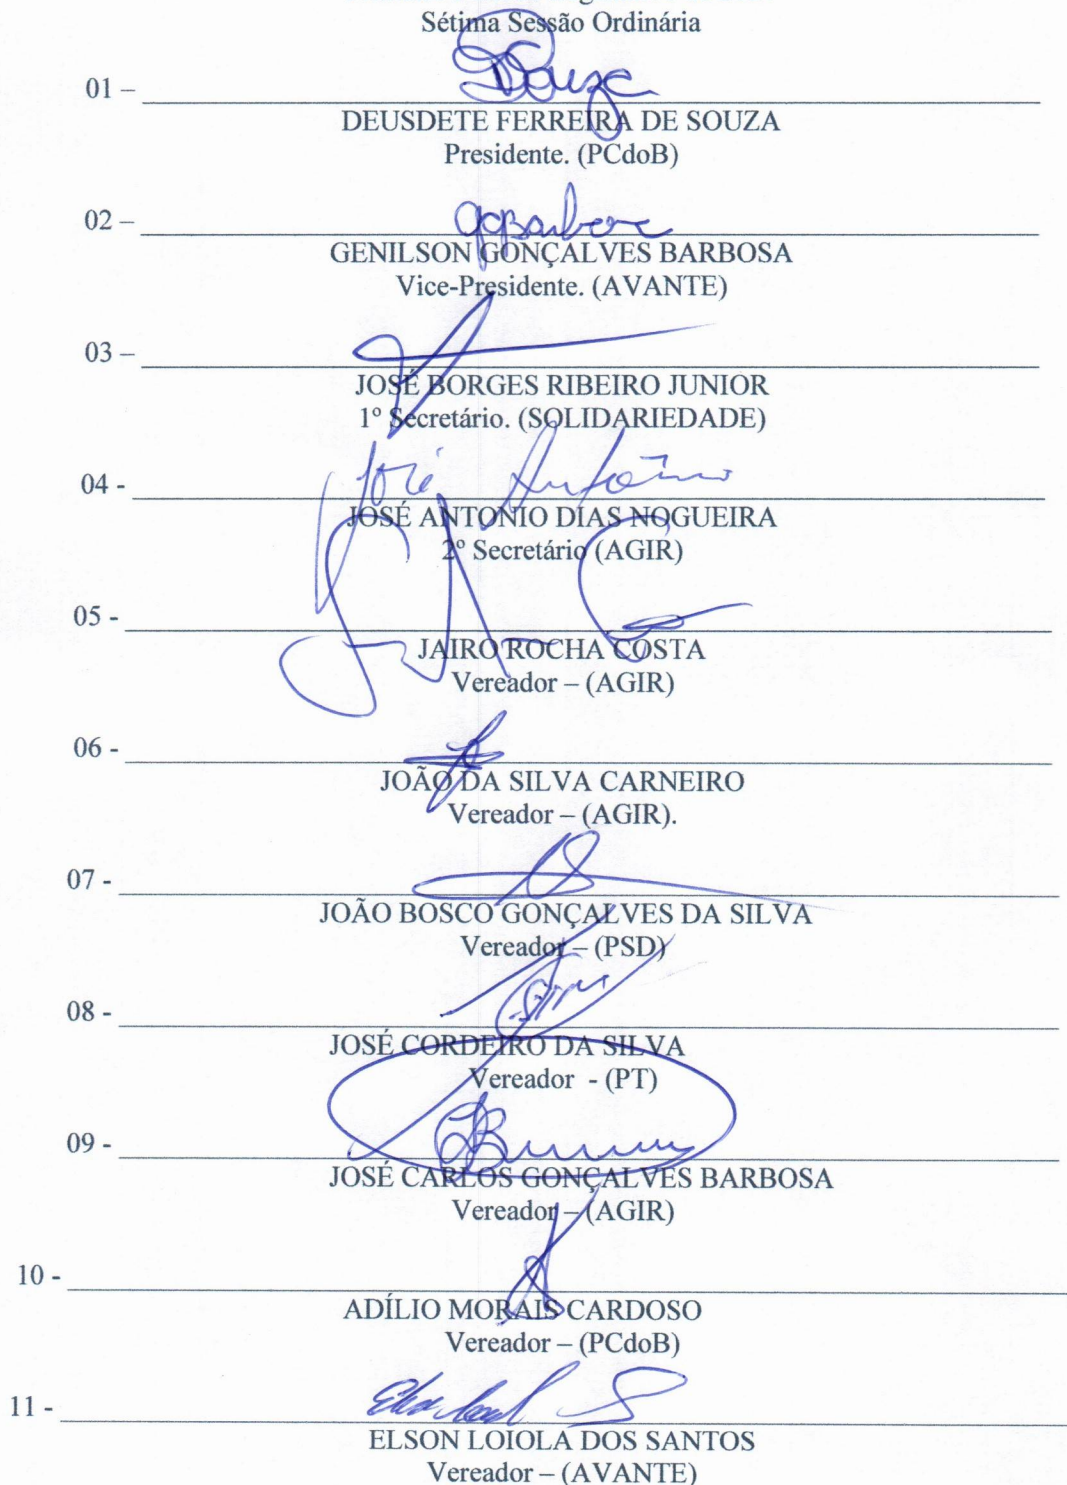 Sétima Sessão Ordinária
01 –
DSouza
DEUSDETE FERREIRA DE SOUZA
Presidente. (PCdoB)
02 –
GENILSON GONÇALVES BARBOSA
Vice-Presidente. (AVANTE)
03 –
JOSÉ BORGES RIBEIRO JUNIOR
1º Secretário. (SOLIDARIEDADE)
04 -
José Antônio
JOSÉ ANTONIO DIAS NOGUEIRA
2º Secretário (AGIR)
05 -
JAIRO ROCHA COSTA
Vereador – (AGIR)
06 -
JOÃO DA SILVA CARNEIRO
Vereador – (AGIR).
07 -
JOÃO BOSCO GONÇALVES DA SILVA
Vereador – (PSD)
08 -
JOSÉ CORDEIRO DA SILVA
Vereador - (PT)
09 -
JOSÉ CARLOS GONÇALVES BARBOSA
Vereador – (AGIR)
10 -
ADÍLIO MORAIS CARDOSO
Vereador – (PCdoB)
11 -
ELSON LOIOLA DOS SANTOS
Vereador – (AVANTE)